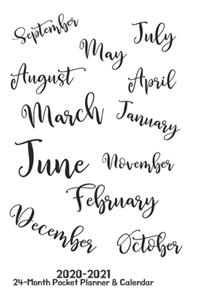 September
July
May
August
April
March
January
June
November
February
December
October
2020-2021
24-Month Pocket Planner & Calendar